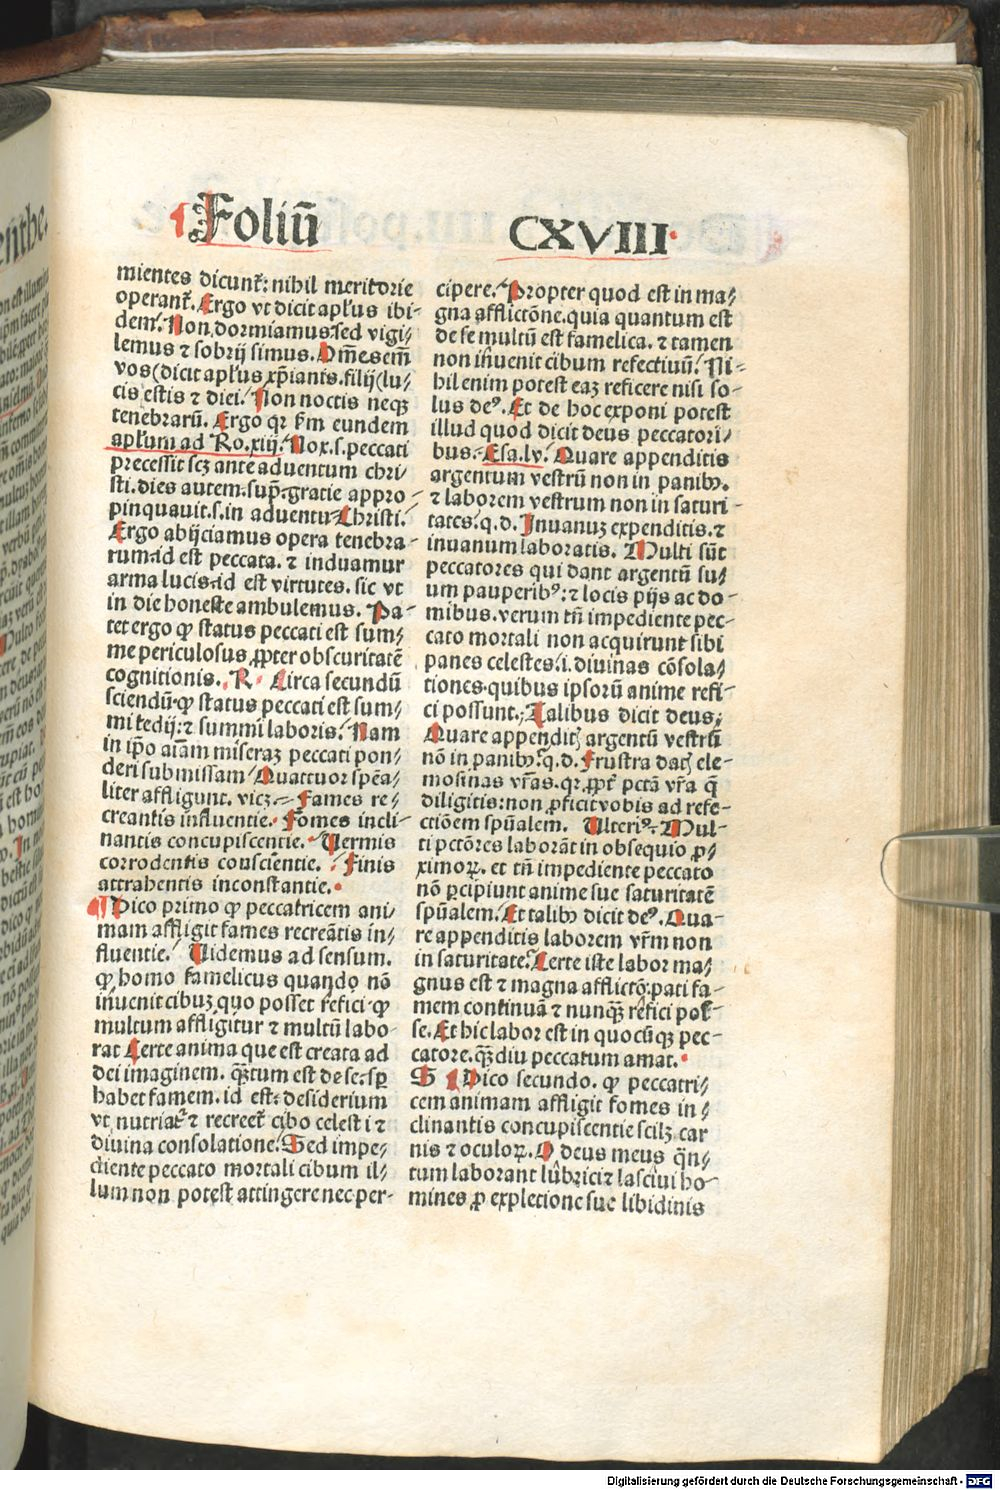 Foliū CXVIII
mientes dicunt᷑: nihil meritorie
operant᷑. Ergo vt dicit apl'us ibi-
dem. Non dormiamus: sed vigi/
lemus ⁊ sobrij simus. Om̄es em̄
vos (dicit apl'us xp̄ianis. filij (lu/
cis estis ⁊ diei. Non noctis neqꝫ
tenebrarū. Ergo qr ẜm eundem
apl'um ad Ro. xiij. Nox .s. peccati
precessit scꝫ ante aduentum chri/
sti. dies autem. sup̄. gratie appro-
pinquauit .s. in aduentu Christi.
Ergo abijciamus opera tenebra-
rum. id est peccata. ⁊ induamur
arma lucis. id est virtutes. sic vt
in die honeste ambulemus. Pa-
tet ergo ꝙ status peccati est sum/
me periculosus ꝓpter obscuritatē
cognitionis. R. Circa secundū
sciendū. ꝙ status peccati est sum/
mi tedij: ⁊ summi laboris. Nam
in ip̄o aīam miseraꝫ peccati pon/
deri submissam Quattuor sp̄ea/
liter affligunt. vicꝫ Fames re/
creantis influentie. Fomes incli-
nantis concupiscentie. Vermis
corrodentis conscientie. Finis
attrahentis inconstantie.
¶ Dico primo ꝙ peccatricem ani/
mam affligit fames recreātis in/
fluentie. Videmus ad sensum.
ꝙ homo famelicus quando nō
inuenit cibuꝫ quo posset refici ꝙ
multum affligitur ⁊ multū labo-
rat Certe anima que est creata ad
dei imaginem. qꝫtum est de se. sꝑ
habet famem. id est desiderium
vt nutriat᷑ ⁊ recreet᷑ cibo celesti ⁊
diuina consolatione. Sed impe/
diente peccato mortali cibum il/
lum non potest attingere nec per-
cipere. Propter quod est in ma/
gna afflictōne. quia quantum est
de se multū est famelica. ⁊ tamen
non inuenit cibum refectiuū. Ni-
hil enim potest eaꝫ reficere nisi so-
lus deꝰ. Et de hoc exponi potest
illud quod dicit deus peccatori/
bus. Esa. lv. Quare appenditis
argentum vestrū non in panibꝰ.
⁊ laborem vestrum non in saturi-
tate. q. d. Inuanuꝫ expenditis. ⁊
inuanum laboratis. Multi sūt
peccatores qui dant argentū su/
um pauperibꝰ: ⁊ locis pijs ac do-
mibus. verum tn̄ impediente pec-
cato mortali non acquirunt sibi
panes celestes .i. diuinas cōsola/
tiones. quibus ipsorū anime refi-
ci possunt. Talibus dicit deus.
Quare appenditꝭ argentū vestrū
nō in panibꝰ. q. d. Frustra datꝭ ele-
mosinas vr̄as. qr ꝓpt᷑ pctā vr̄a q̄
diligitis: non ꝓficit vobis ad refe-
ctiōem sp̄ualem. Vlteriꝰ. Mul-
ti pctōres laborāt in obsequio ꝓ/
ximoꝝ. et tn̄ impediente peccato
nō ꝑcipiunt anime sue saturitatē
sp̄ualem. Et talibꝰ dicit deꝰ. Qua-
re appenditis laborem vr̄m non
in saturitate. Certe iste labor ma/
gnus est ⁊ magna afflictō: pati fa-
mem continuā ⁊ nunqꝫ refici pos-
se. Et hic labor est in quocūqꝫ pec-
catore. qꝫdiu peccatum amat.
S ¶ Dico secundo. ꝙ peccatri/
cem animam affligit fomes in/
clinantis concupiscentie scilꝫ car
nis ⁊ oculoꝝ. O deus meus qn̄/
tum laborant lubrici ⁊ lasciui ho-
mines ꝓ expletione sue libidinis
Digitalisierung gefördert durch die Deutsche Forschungsgemeinschaft - DFG